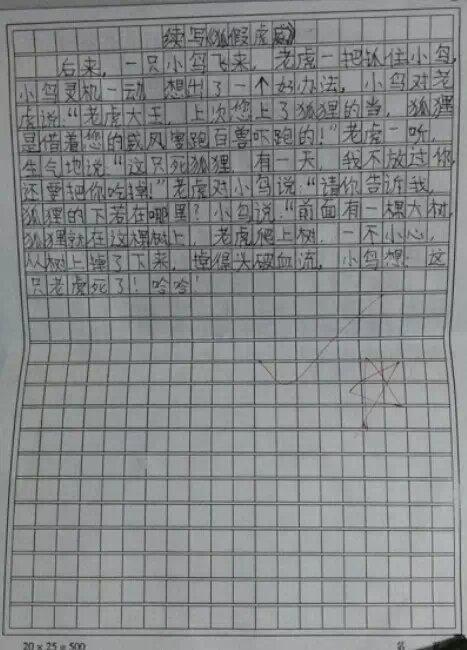 续写《狐假虎威》
后来，一只小鸟飞来，老虎一把抓住小鸟，
小鸟灵机一动，想出了一个好办法，小鸟对老
虎说：“老虎大王，上次您上了狐狸的当，狐狸
是借着您的威风要跑百兽吓跑的！”老虎一听，
生气地说：“这只死狐狸，有一天，我不放过你，
还要把你吃掉！”老虎对小鸟说：“请你告诉我，
狐狸的下若在哪里？小鸟说：“前面有一棵大树，
狐狸就在这棵树上，老虎爬上树，一不小心，
从树上掉了下来，摔得头破血流，小鸟想：这
只老虎死了！哈哈！
20×25=500
第